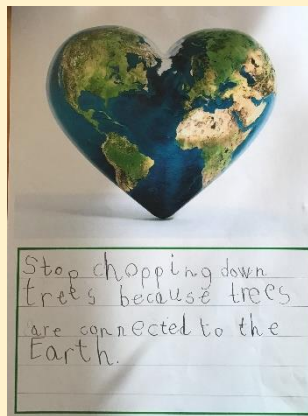 Stop chopping down
trees because trees
are connected to the
Earth.